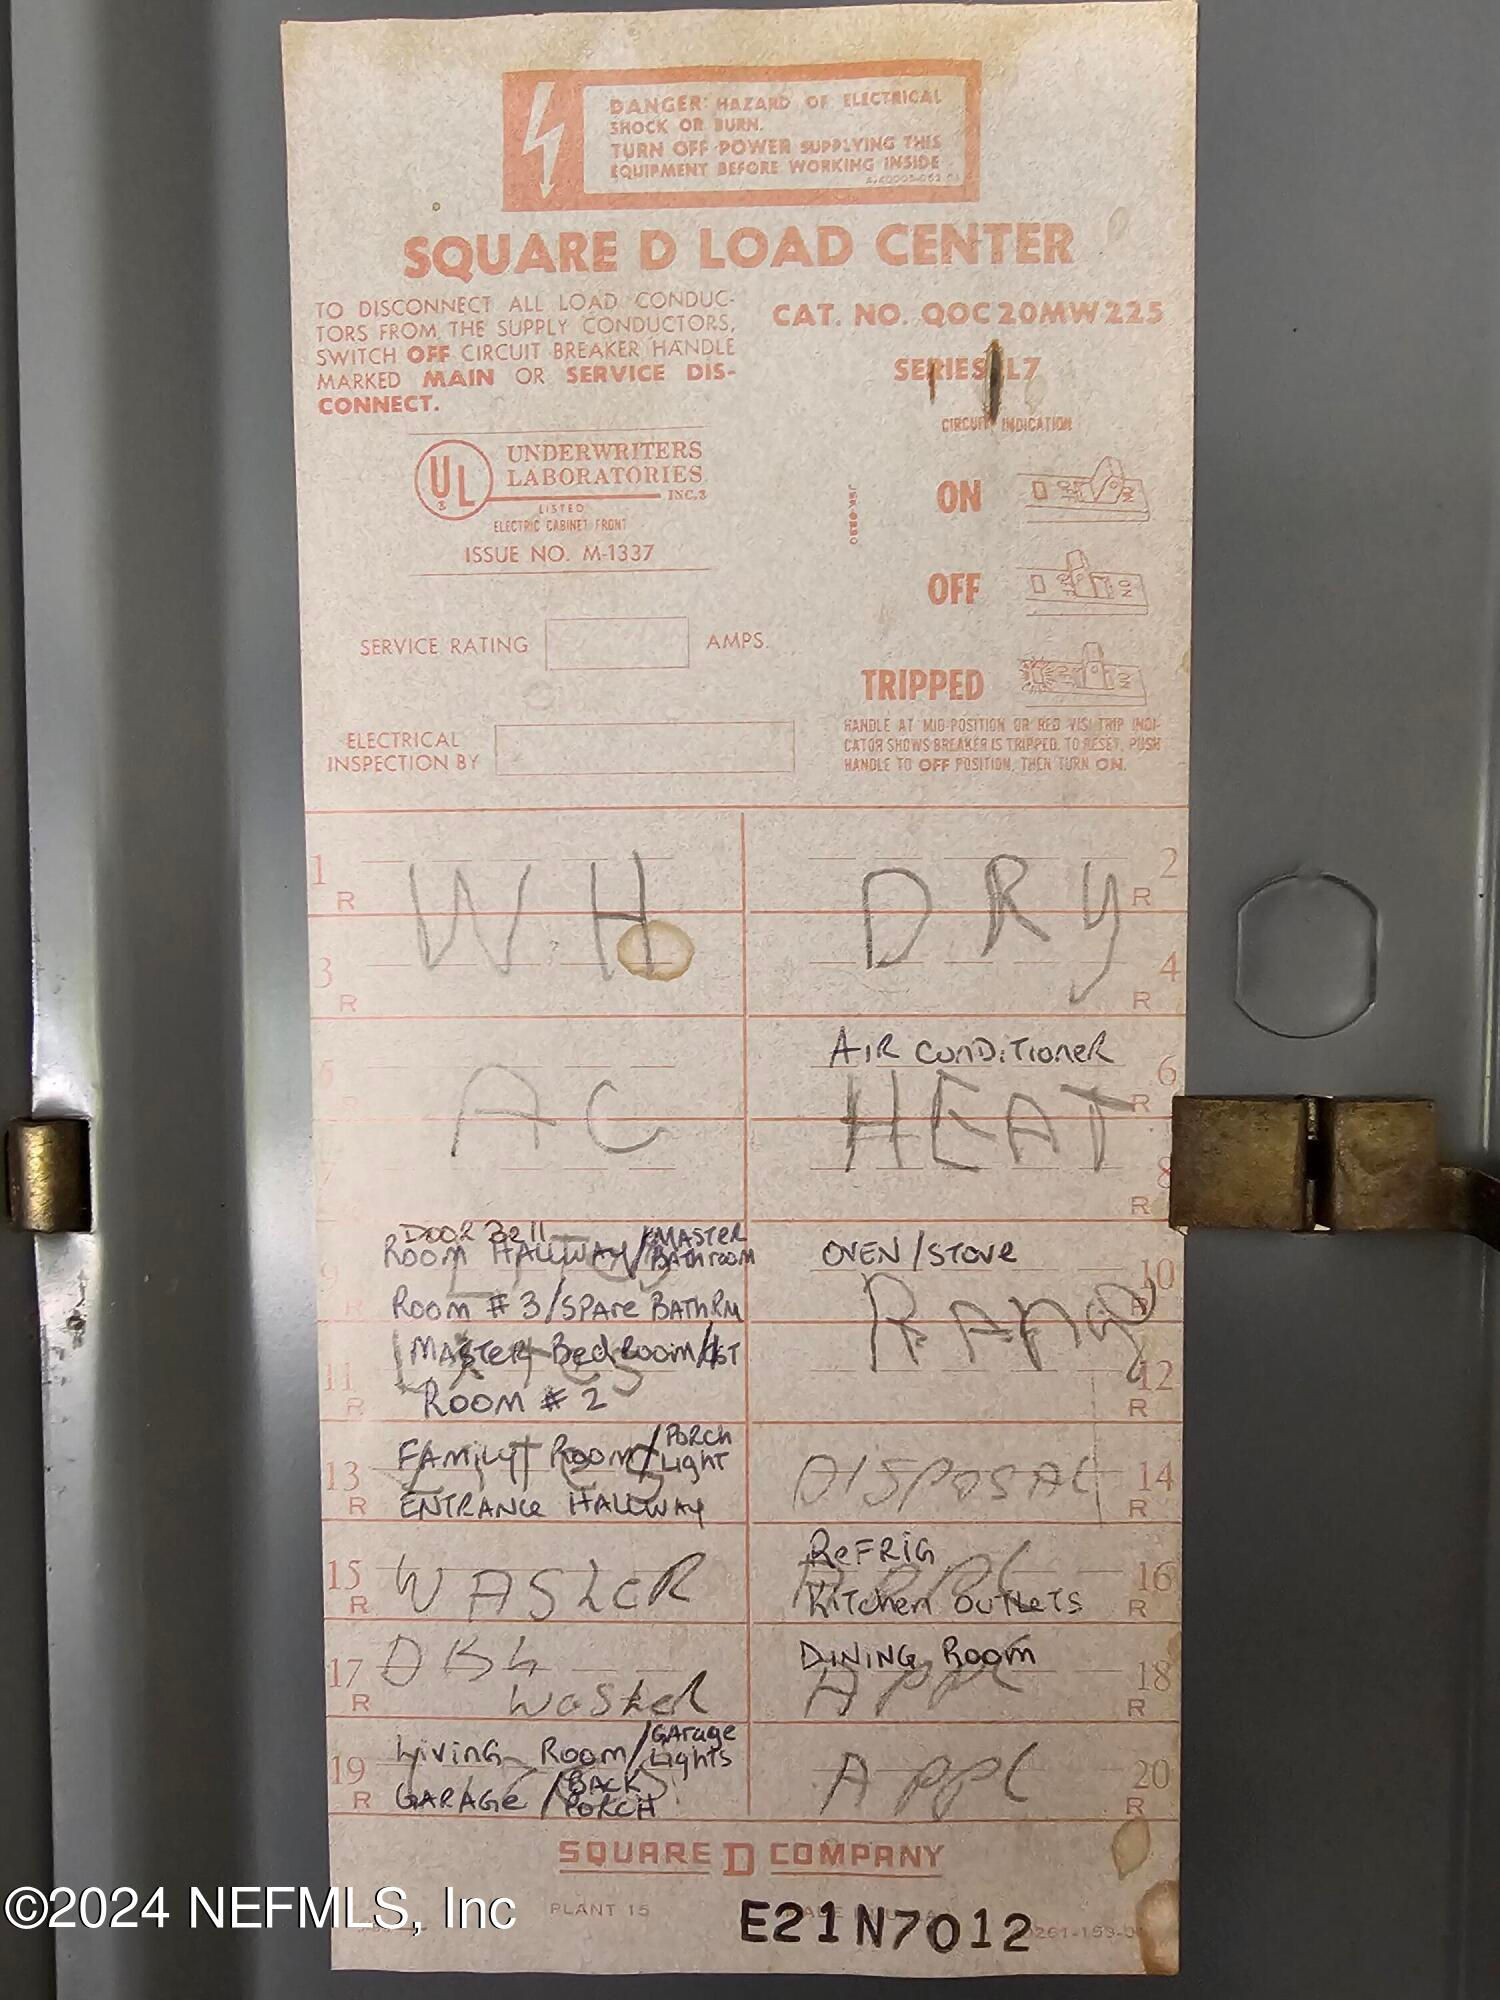 DANGER: HAZARD OF ELECTRICAL
SHOCK OR BURN.
TURN OFF POWER SUPPLYING THIS
EQUIPMENT BEFORE WORKING INSIDE
SQUARE D LOAD CENTER
TO DISCONNECT ALL LOAD CONDUC-
TORS FROM THE SUPPLY CONDUCTORS,
SWITCH OFF CIRCUIT BREAKER HANDLE
MARKED MAIN OR SERVICE DIS-
CONNECT.
CAT. NO. QOC20MW225
SERIES L7
CIRCUIT INDICATION
UL
UNDERWRITERS
LABORATORIES
INC.®
LISTED
ELECTRIC CABINET FRONT
ISSUE NO. M-1337
ON
OFF
SERVICE RATING AMPS.
TRIPPED
HANDLE AT MID-POSITION OR RED VISI TRIP INDI-
CATOR SHOWS BREAKER IS TRIPPED. TO RESET, PUSH
HANDLE TO OFF POSITION, THEN TURN ON.
ELECTRICAL
INSPECTION BY
1 R WH DRY 2 R
3 R 4 R
AIR CONDiTioneR 6 R
5 AC HEAT
7 8 R
DOOR Bell
9 R ROOM HALLWAY/MASTER BAThroom OVEN/STOVE 10 R
ROOM #3/SPAre BATHRM RANge
11 R MASTER BedRoom/ 12 R
ROOM #2
13 R FAMILY ROOM/PORCh LighT DISPOSAL 14 R
ENTRANCE HALLWAY
15 R WASheR ReFRIG 16 R
KITchen OUTLETS APPL
17 R DISh WaSheR DINING Room 18 R
APPL
19 R LiVinG Room/GArage Lights APPL 20 R
GARAGE/BACK PORCH
SQUARE D COMPANY
PLANT 15
E21N7012
©2024 NEFMLS, Inc